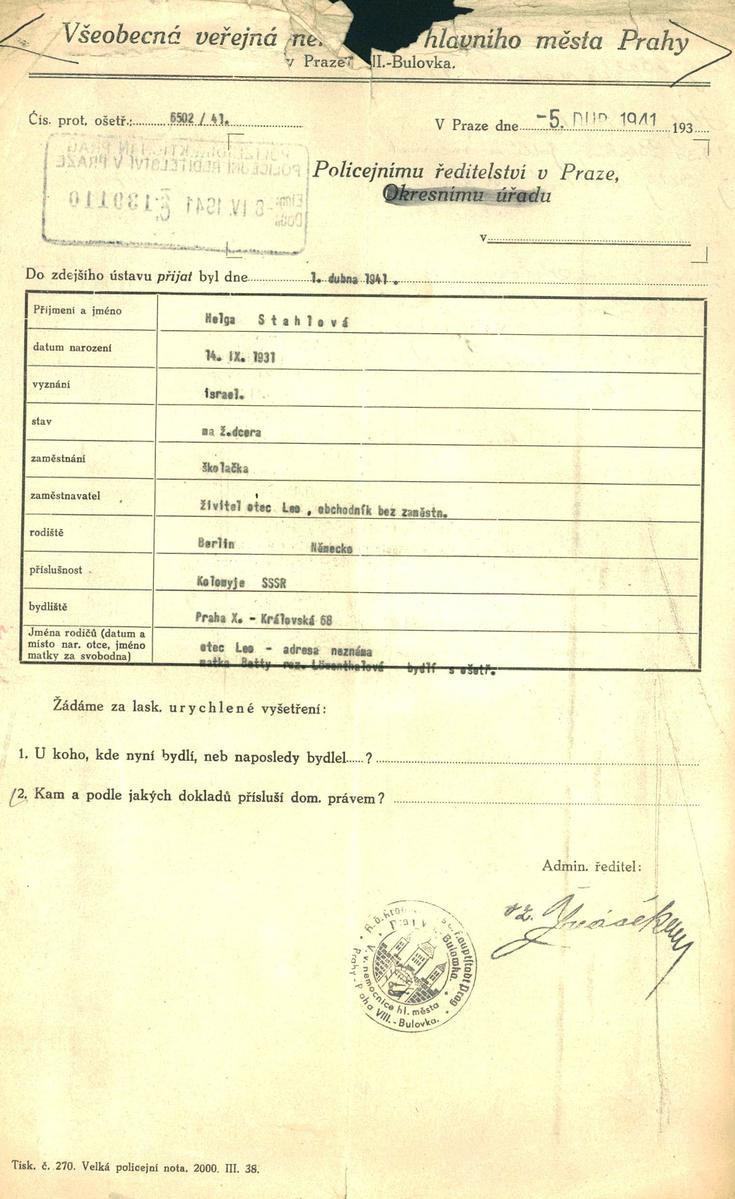 Všeobecná veřejná hlavního města Prahy
v Praze II.-Bulovka.
Čís. prot. ošetř.: 6502 / 41.
V Praze dne -5. DUB. 1941 193
POLICEJNÍ ŘEDITELSTVÍ V PRAZE
Policejnímu ředitelství v Praze,
Okresnímu úřadu
IV 1941 č 139110
v
Do zdejšího ústavu přijat byl dne 1. dubna 1941.
Příjmení a jméno Helga Stahlová
datum narození 14. IX. 1931
vyznání israel.
stav na ž.dcera
zaměstnání školačka
zaměstnavatel živitel otec Leo , obchodník bez zaměstn.
rodiště Berlin Německo
příslušnost Kolomyje SSSR
bydliště Praha X. - Královská 68
Jména rodičů (datum a
místo nar. otce, jméno
matky za svobodna)
otec Leo - adresa neznáma
matka Betty roz. Löwenthalová - bydlí s ošetř.
Žádáme za lask. urychlené vyšetření:
1. U koho, kde nyní bydlí, neb naposledy bydlel.....?
2. Kam a podle jakých dokladů přísluší dom. právem?
Admin. ředitel:
Hauptstadt Prag
Bulowka.
V. v. nemocnice hl. města
Prahy - Praha VIII. - Bulovka.
Tisk. č. 270. Velká policejní nota. 2000. III. 38.